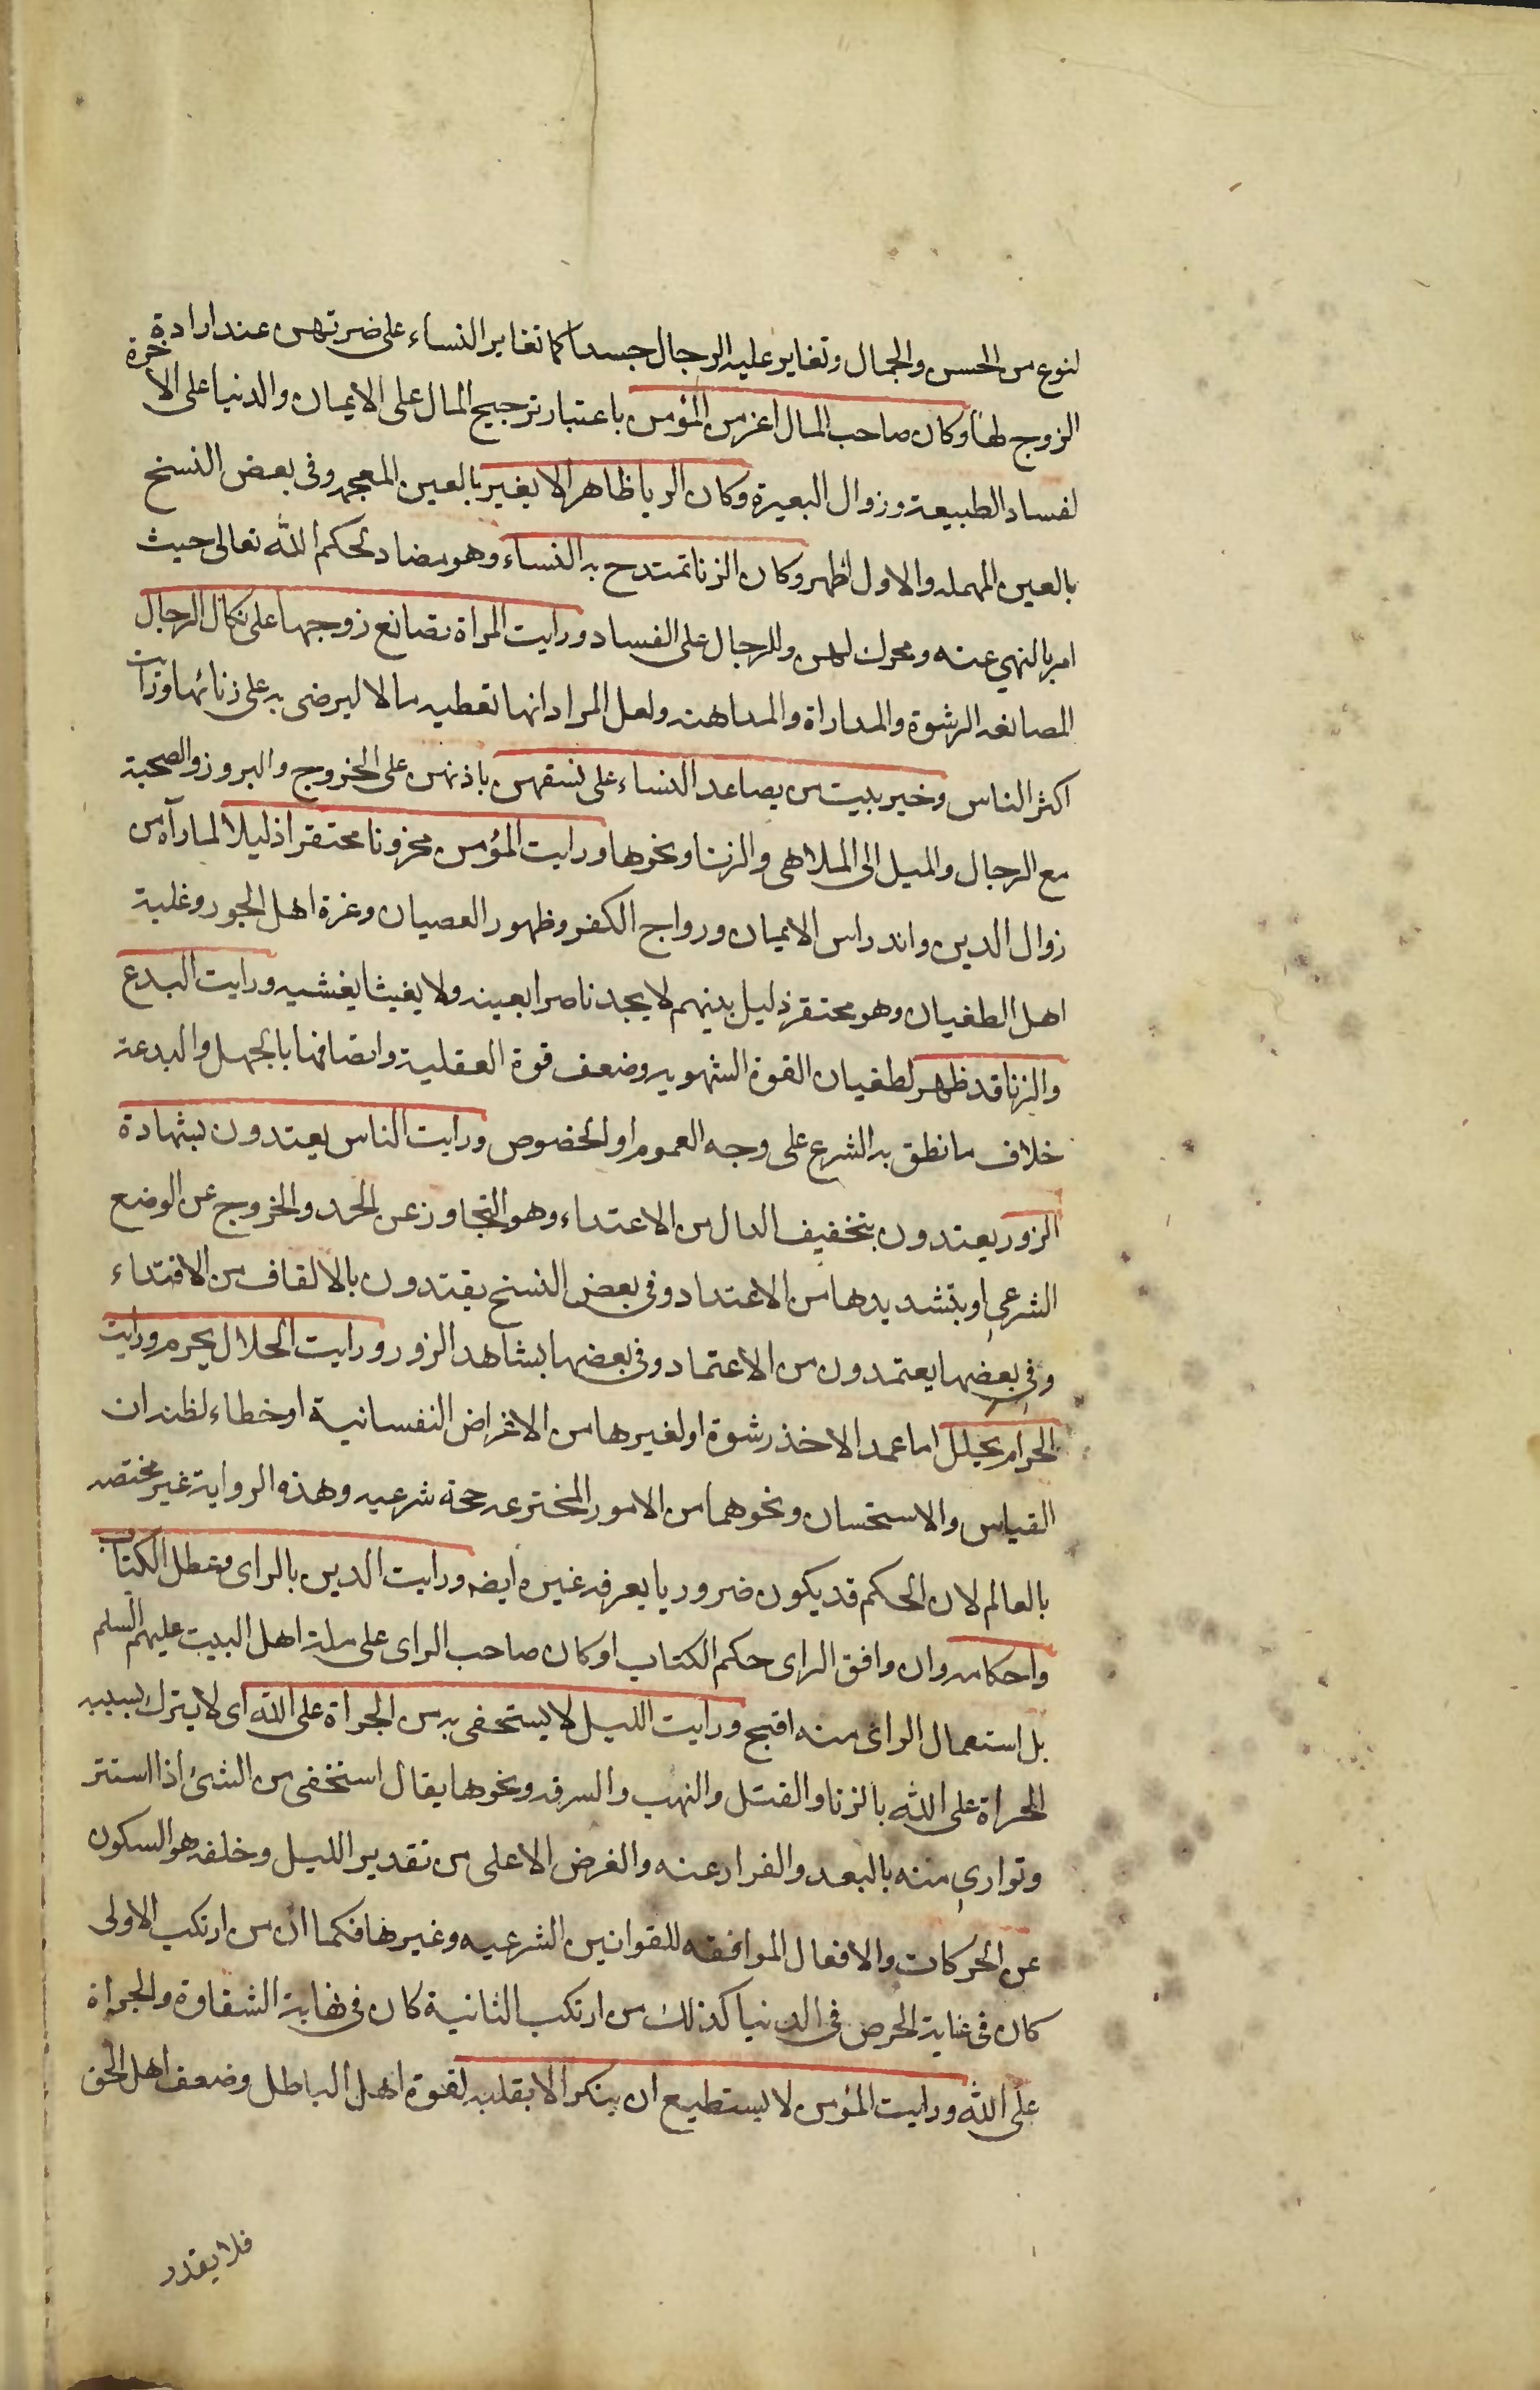 لنوع من الحسن والجمال وتغاير عليه الرجال حسدا كما تغاير النساء على ضرتهن عند ارادة
الزوج لها وكان صاحب المال اعز من المؤمن باعتبار ترجيح المال على الايمان والدنيا على الاخرة
لفساد الطبيعة وزوال البصيرة وكان الربا ظاهرا لا يغير بالغين المعجمه وفى بعض النسخ
بالعين المهمله والاول اظهر وكان الزنا تمتدح به النساء وهو مضاد لحكم الله تعالى حيث
امر بالنهي عنه ومحرك لهن وللرجال على الفساد ورايت المراة تصانع زوجها على نكال الرجال
المصانعه الرشوة والمداراة والمداهنه ولعل المراد انها تعطيه مالا ليرضى به على زنائها ورايت
اكثر الناس وخير بيت من يصاعد النساء على نسقهن باذنهن على الخروج والبروز والصحبة
مع الرجال والميل الى الملاهى والزنا ونحوها ورايت المؤمن محزونا محتقرا ذليلا لما رآه من
زوال الدين واندراس الايمان ورواج الكفر وظهور العصيان وعزة اهل الجور وغلبة
اهل الطغيان وهو محتقر ذليل بينهم لا يجد ناصرا يعينه ولا يغيثا يغشيه ورايت البدع
والزنا قد ظهر لطغيان القوة الشهويه وضعف قوة العقلية واتصافها بالجهل والبدعة
خلاف ما نطق به الشرع على وجه العموم او الخصوص ورايت الناس يعتدون بشهادة
الزور يعتدون بتخفيف الدال من الاعتداء وهو التجاوز عن الحد والخروج عن الوضع
الشرعي او بتشديدها من الاعتداد وفى بعض النسخ يقتدون بالالقاف من الاقتداء
وفى بعضها يعتمدون من الاعتماد وفى بعضها بشاهد الزور ورايت الحلال يحرم ورايت
الحرام يحلل اما عمدا لاخذ رشوة او لغيرها من الاغراض النفسانية او خطاء لظنه ان
القياس والاستحسان ونحوهما من الامور المخترعه حجة شرعيه وهذه الرواية غير مختصه
بالعالم لان الحكم قد يكون ضروريا يعرفه غيره ايضه ورايت الدين بالراى وعطل الكتاب
واحكامه وان وافق الراى حكم الكتاب او كان صاحب الراى على ملة اهل البيت عليهم السلم
بل استعمال الراى منه اقبح ورايت الليل لا يستخفى به من الجراة على الله اى لا يترك بسببه
الجراة على الله بالزنا والقتل والنهب والسرقه ونحوها يقال استخفى من الشئ اذا استتر
وتوارى منه بالبعد والفرار عنه والغرض الاعلى من تقدير الليل وخلقه هو السكون
عن الحركات والافعال الموافقه للقوانين الشرعيه وغيرها فكما ان من ارتكب الاولى
كان فى غاية الحرص فى الدنيا كذلك من ارتكب الثانية كان فى نهاية الشقاوة والجراة
على الله ورايت المؤمن لا يستطيع ان ينكر الا بقلبه لقوة اهل الباطل وضعف اهل الحق
فلا يقدر